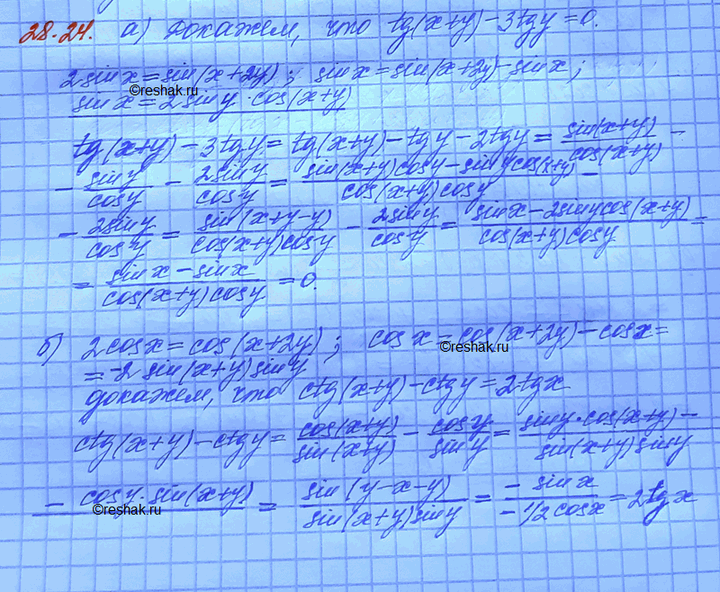 28.24. а) Докажем, что tg(x+y)-3tgy=0.
2sinx=sin(x+2y); sinx=sin(x+2y)-sinx;
©reshak.ru
sinx=2siny·cos(x+y)
tg(x+y)-3tgy=tg(x+y)-tgy-2tgy=sin(x+y)/cos(x+y)-
-siny/cosy-2siny/cosy=(sin(x+y)cosy-sinycos(x+y))/(cos(x+y)cosy)-
-2siny/cosy=sin(x+y-y)/(cos(x+y)cosy)-2siny/cosy=(sinx-2sinycos(x+y))/(cos(x+y)cosy)=
=(sinx-sinx)/(cos(x+y)cosy)=0.
б) 2cosx=cos(x+2y); cosx=cos(x+2y)-cosx=
©reshak.ru
=-2sin(x+y)siny
докажем, что ctg(x+y)-ctgy=2tgx
ctg(x+y)-ctgy=cos(x+y)/sin(x+y)-cosy/siny=(siny·cos(x+y)-
-cosy·sin(x+y))/(sin(x+y)siny)=sin(y-x-y)/(sin(x+y)siny)=-sinx/(-1/2cosx)=2tgx
©reshak.ru